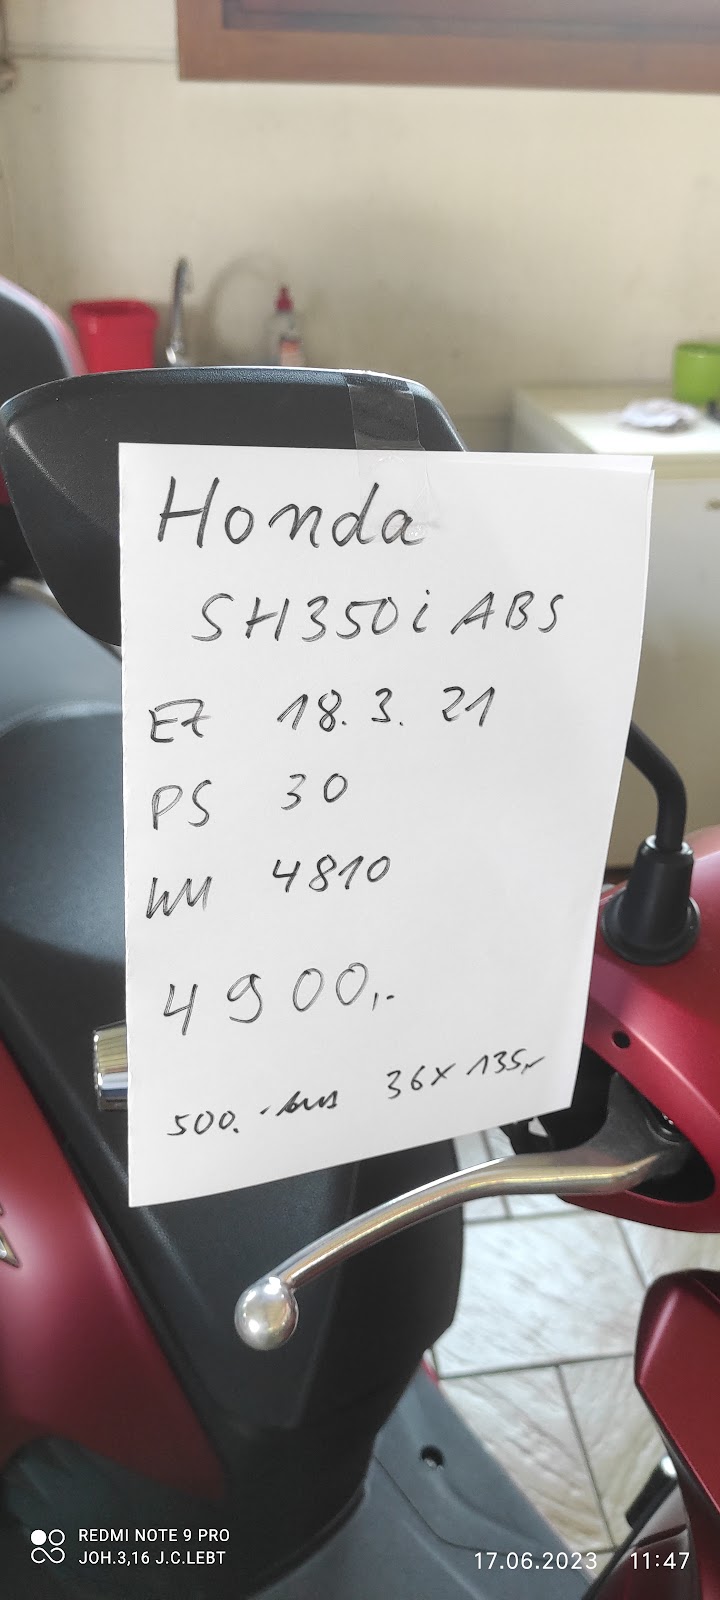 Honda
SH350i ABS
EZ 18.3.21
PS 30
KM 4810
4900,-
500.- 36x 135,-
REDMI NOTE 9 PRO
JOH.3,16 J.C.LEBT
17.06.2023 11:47